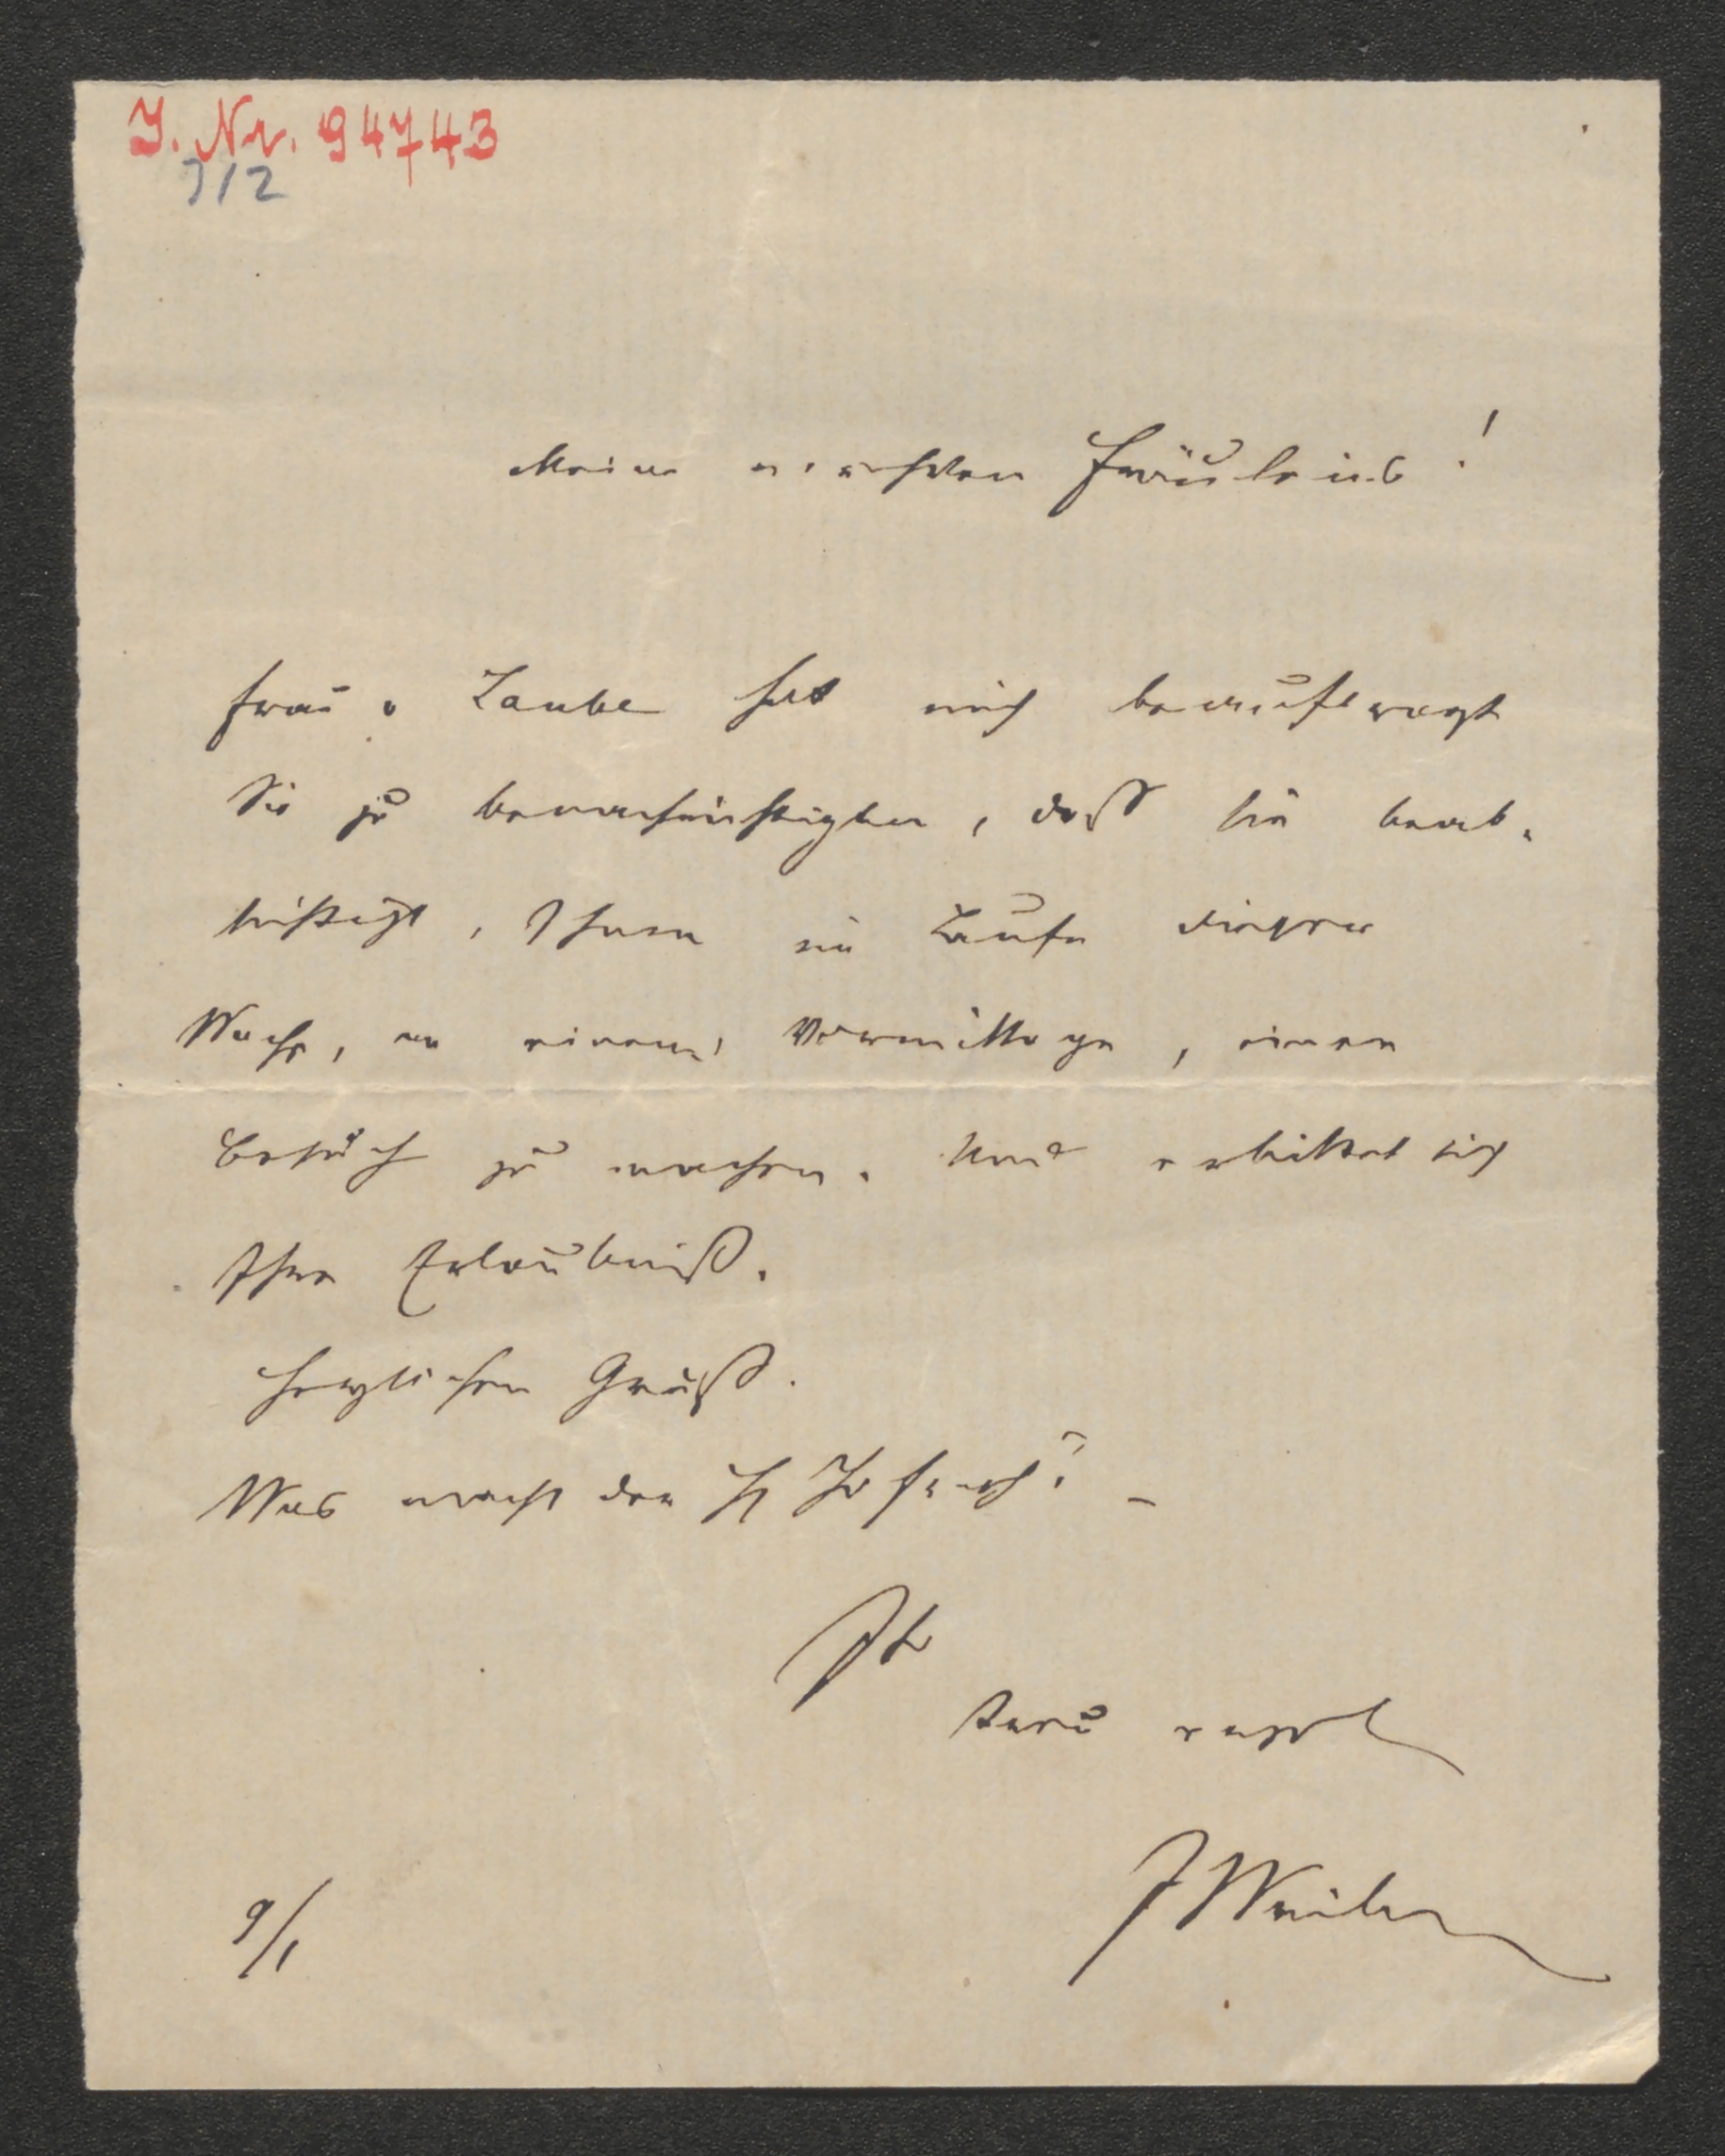 J. Nr. 94743
712
Meine Fräuleins!
Frau v Laube hat mich beauftragt
Sie zu benachrichtigen, daß sie beab-
sichtigt, Ihnen im Laufe dieser
Woche, an einem Vormittage, einen
Besuch zu machen. Und erbittet sich
Ihre Erlaubniß.
Herzlichen Gruß.
Was macht der
Ihr
treu ergeb
JWeilen
9/1